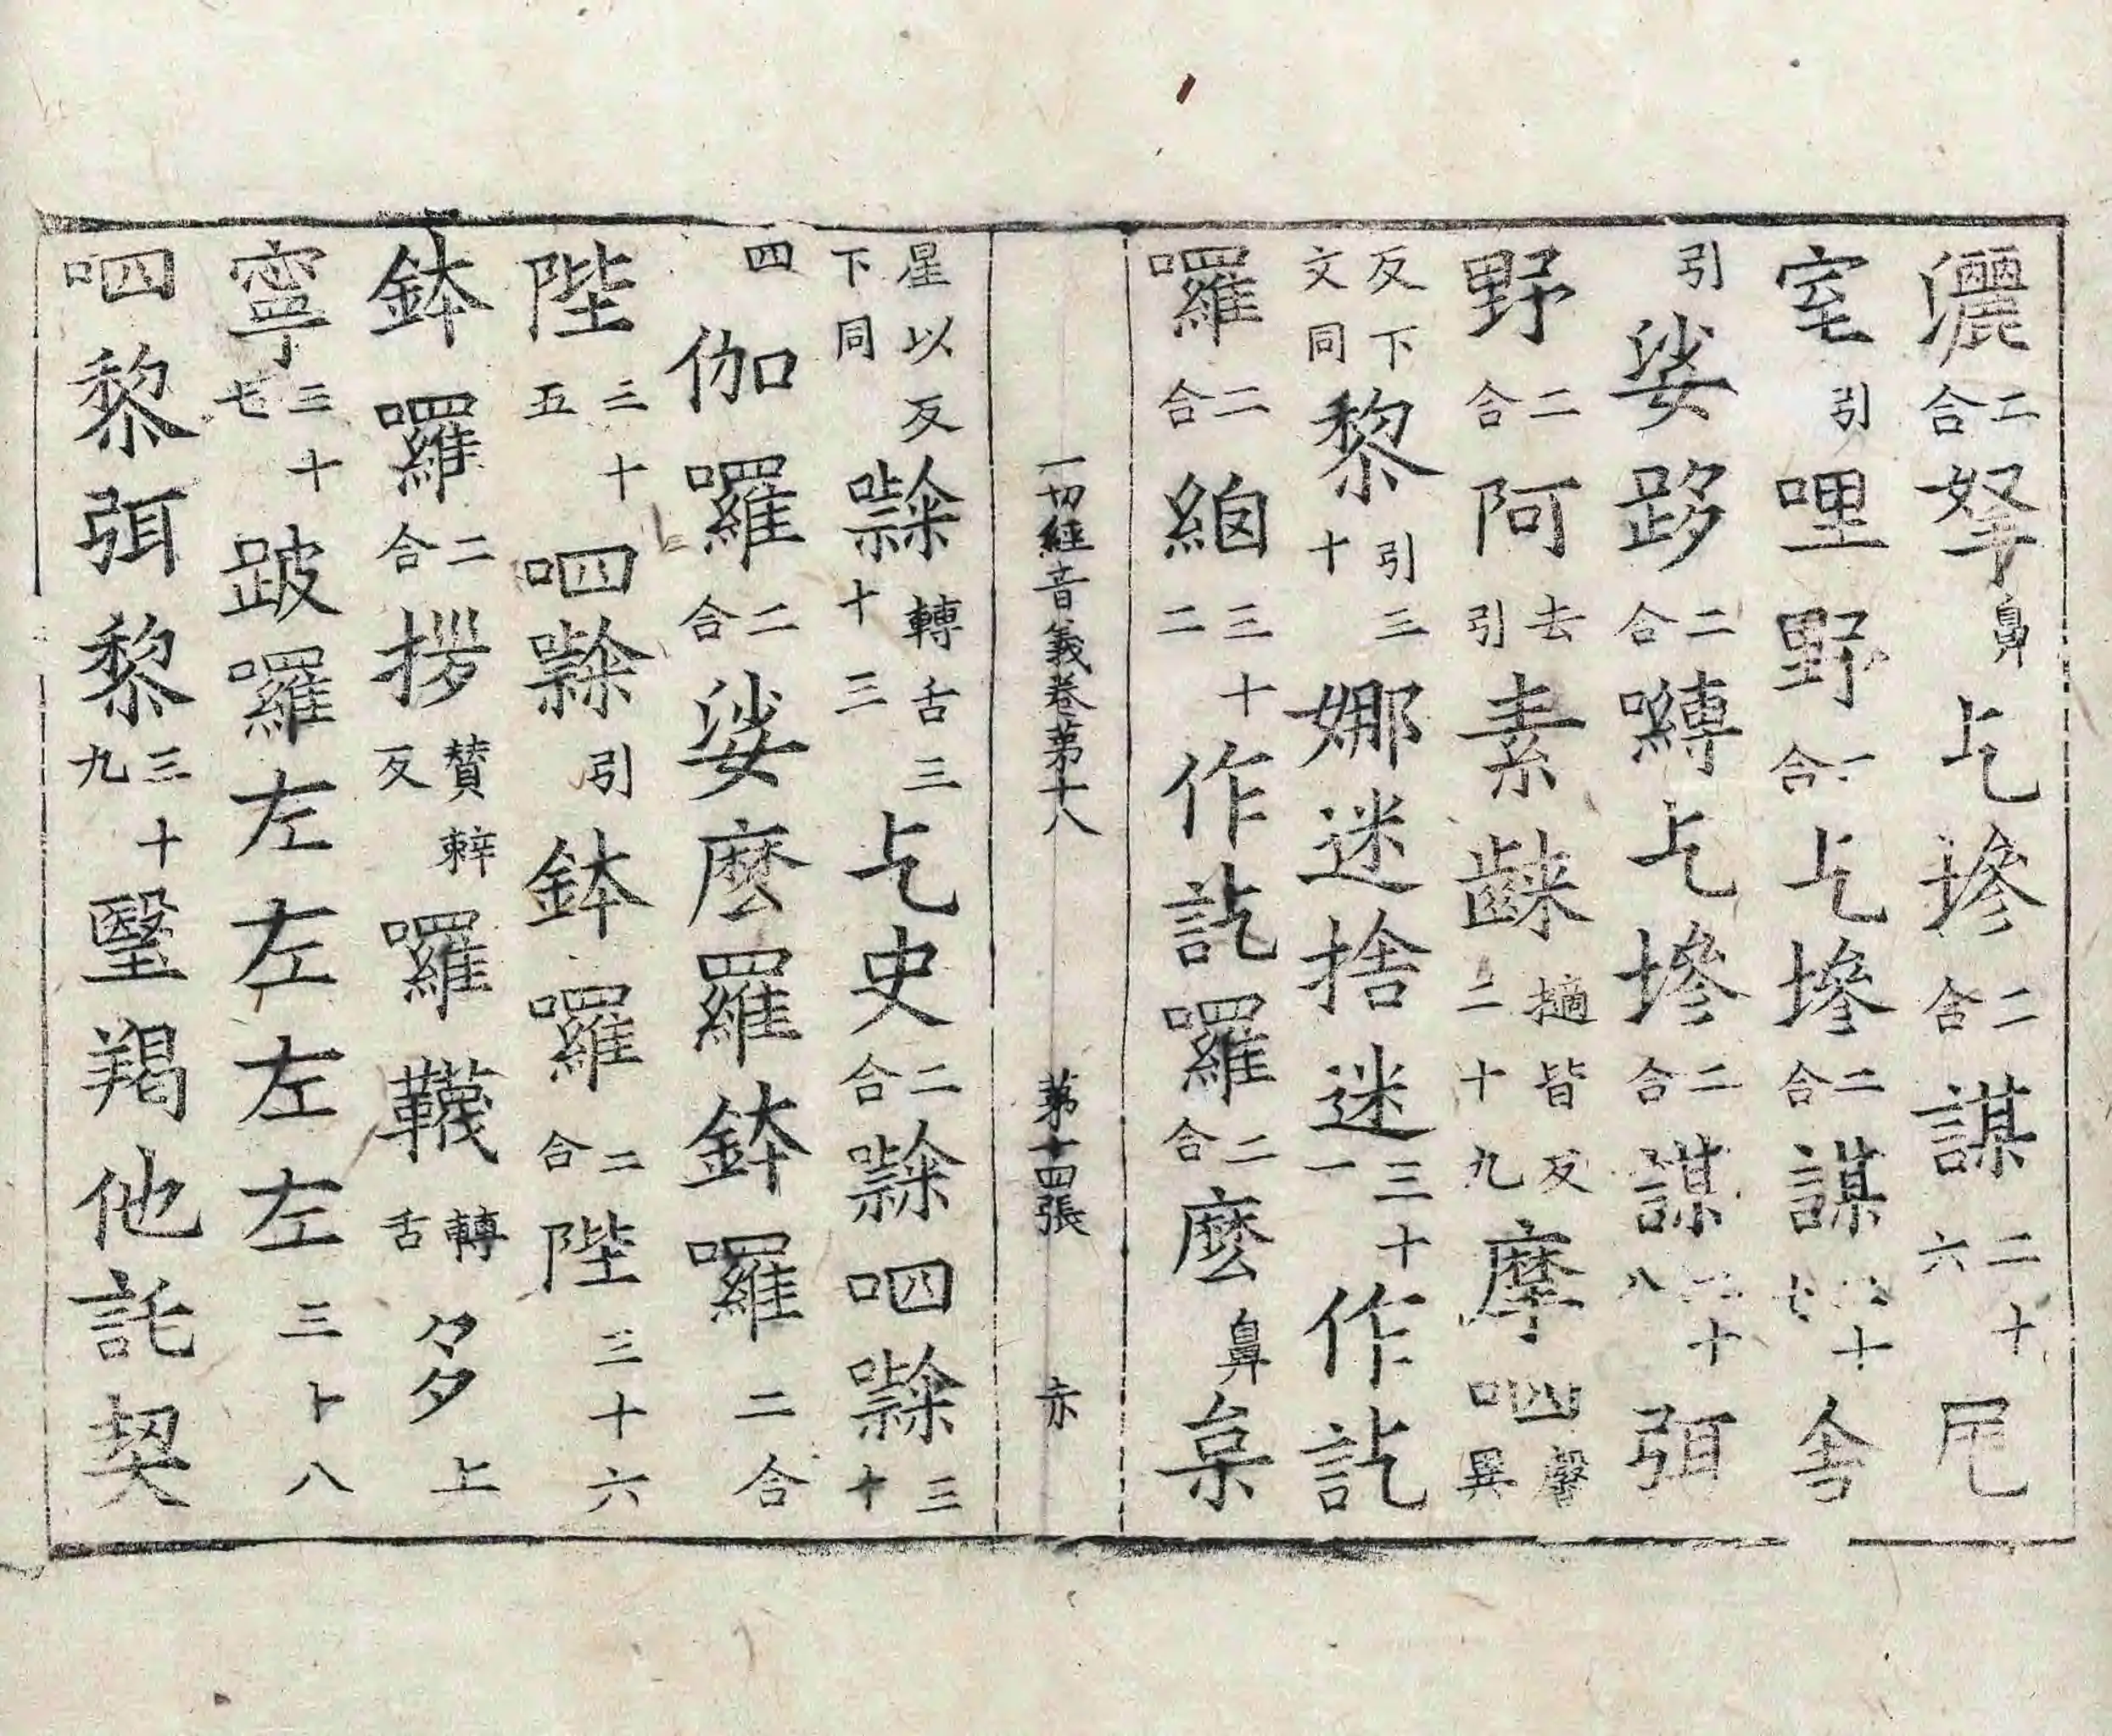 灑二合拏鼻乞摻二合謀二十六尾
室引哩野二合乞摻二合謀二十七舍
引娑跢二合嚩乞摻二合謀二十八弭
野二合阿去引素𪘨擿皆反二十九摩呬馨異
反下文同黎引三十娜迷捨迷三十一作訖
囉二合緰三十二作訖囉二合麽鼻枲
一切經音義卷第十八 第十四張 赤
星以反下同㘑轉舌三十三乞史二合㘑呬㘑三十
四伽囉二合娑麽囉鉢囉二合
陛三十五呬㘑引鉢囉二合陛三十六
鉢囉二合拶贊辢反囉韈轉舌多上
寧三十七跛囉左左左左三十八
呬黎弭黎三十九翳羯他託契